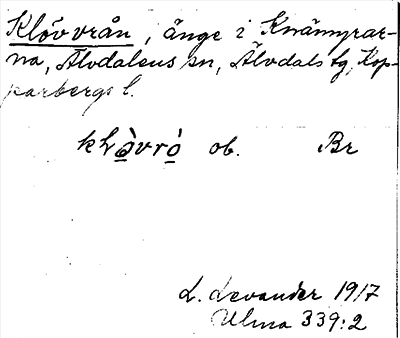 Klövvrån, änge i Knämyrar-
na, Älvdalens sn, Älvdals tg, Kop-
parbergs l.
khòvró ob. Br
L. Levander 1917
Ulma 339:2